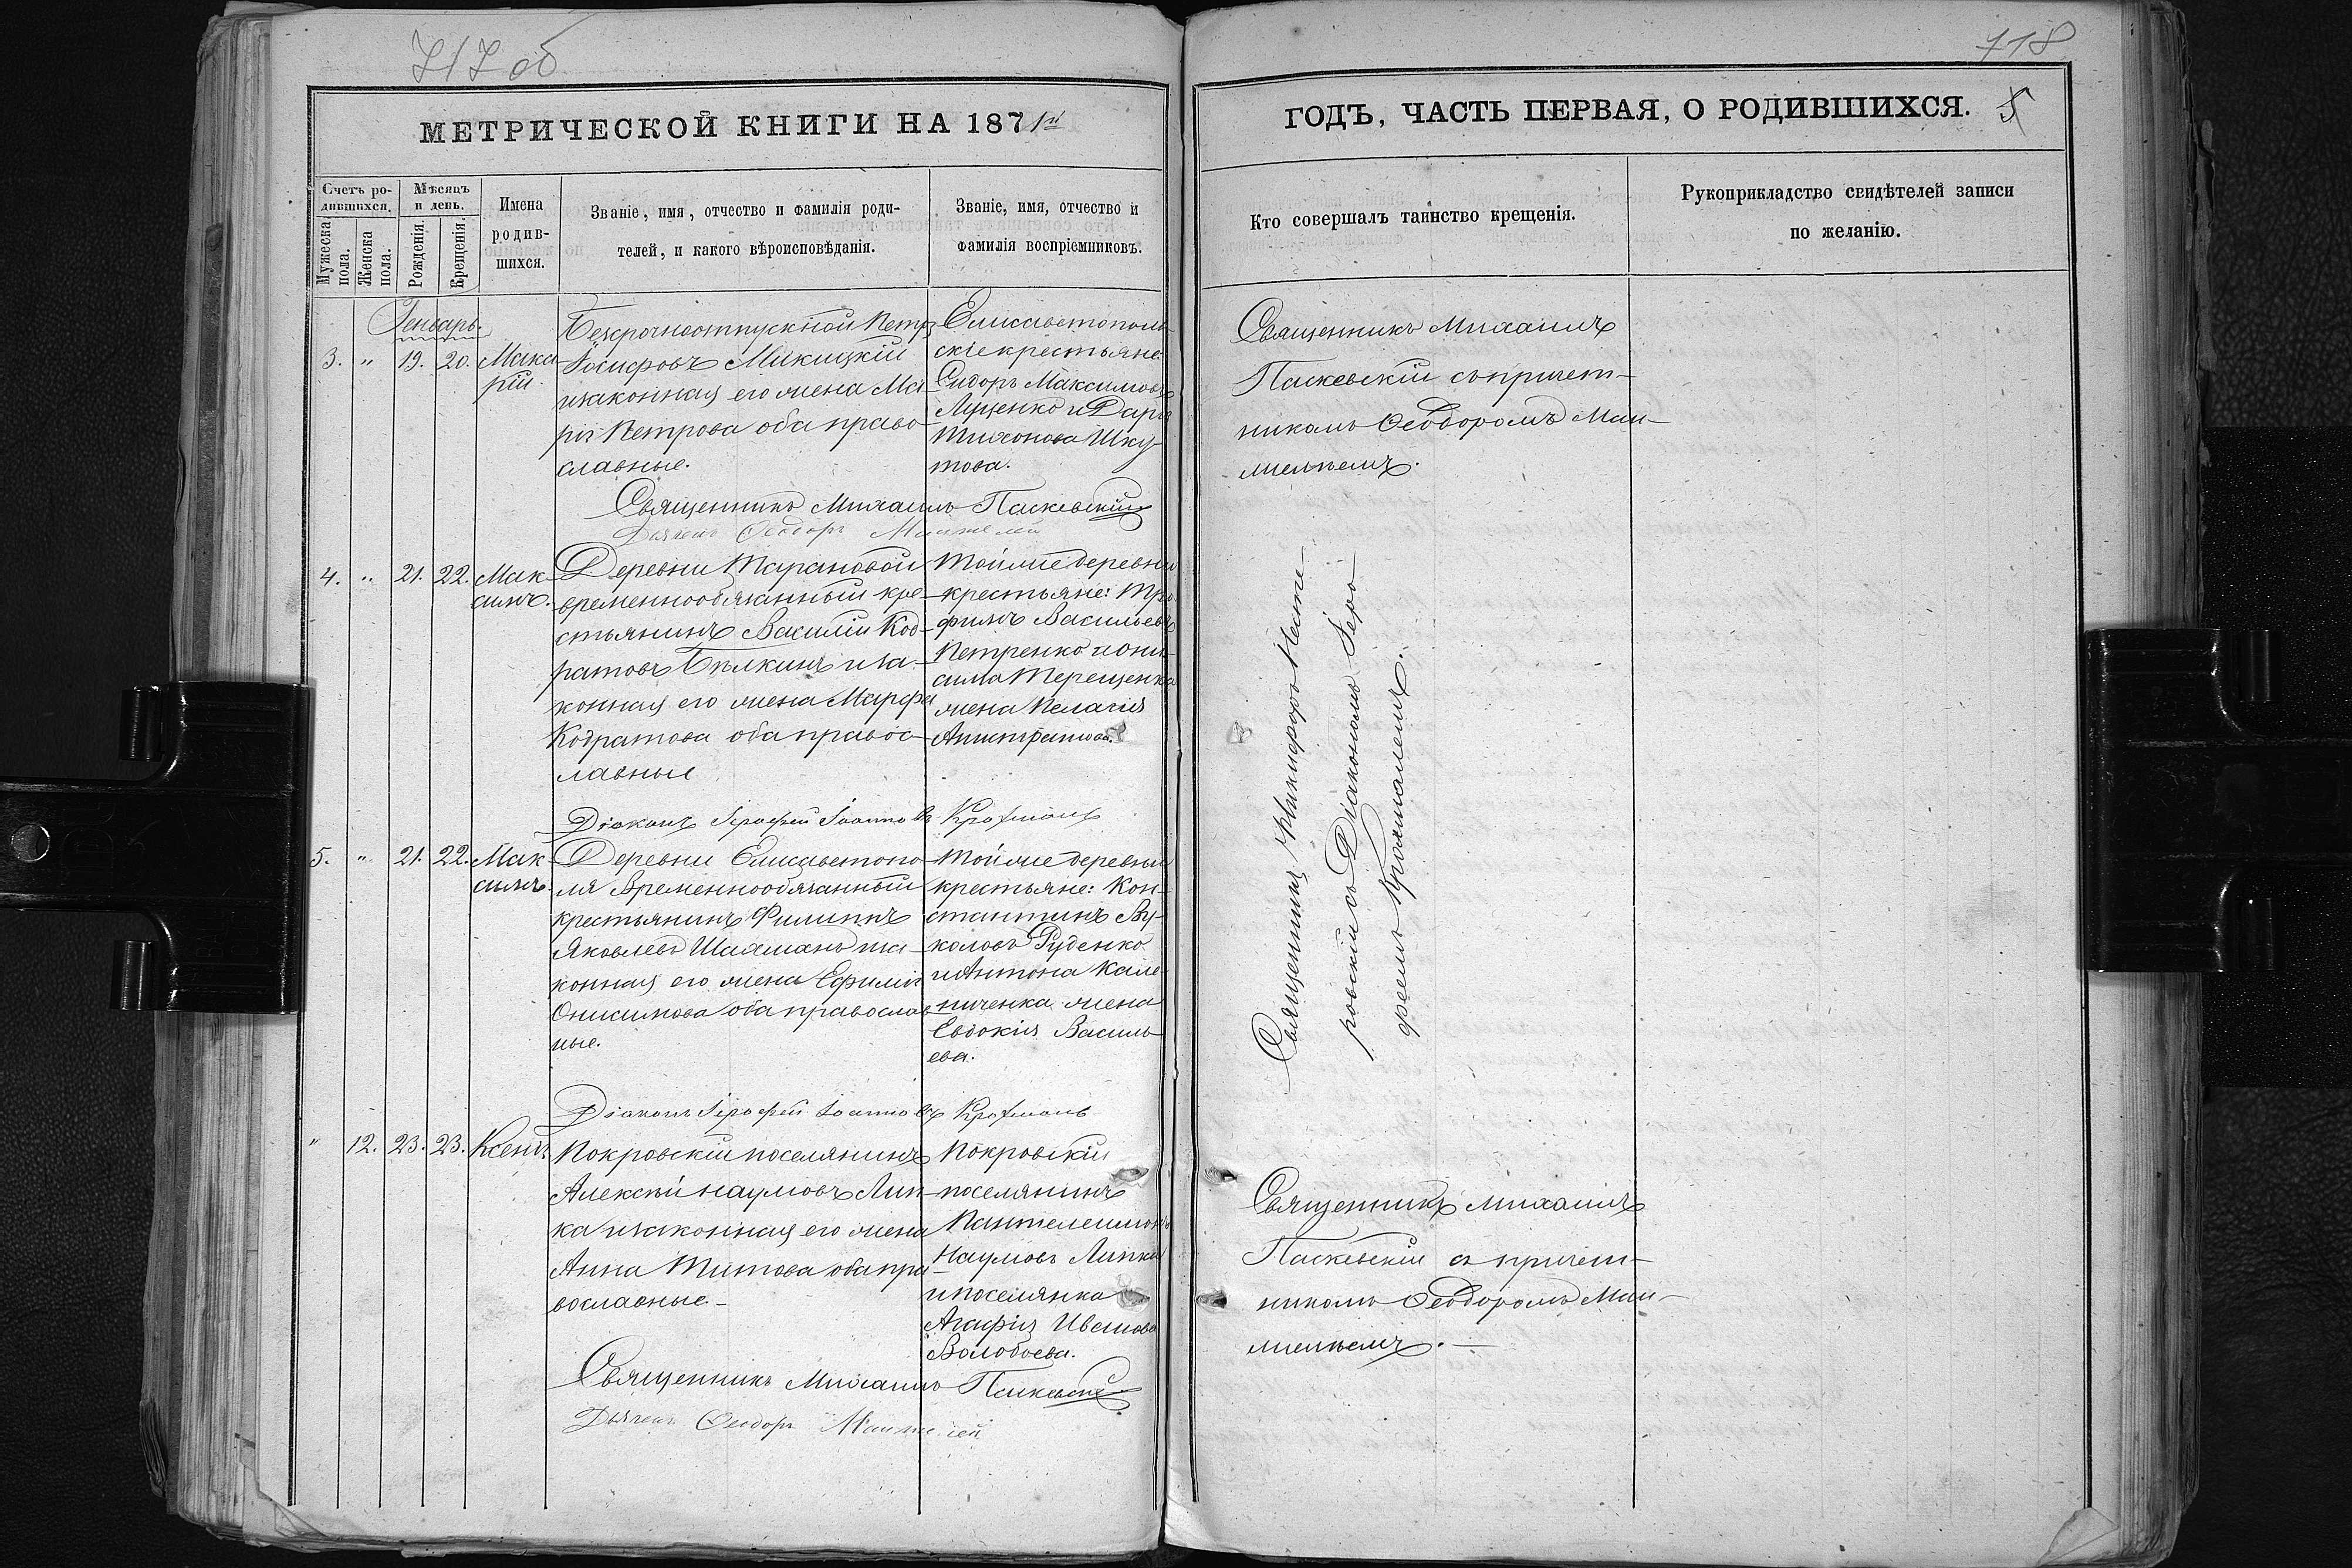 717 об
МЕТРИЧЕСКОЙ КНИГИ НА 1871й
Счетъ ро-
дившихся.
Мужеска пола.
Женска пола.
Мѣсяцъ
и день.
Рожденія.
Крещенія.
Имена
родив-
шихся.
Званіе, имя, отчество и фамилія роди-
телей, и какого вѣроисповѣданія.
Званіе, имя, отчество и
фамилія воспріемниковъ.
Генварь.
3. " 19. 20. Мака
рій.
Безсрочноотпускной Петръ
Іосифовъ Микицкій
изаконная его жена Ма
рія Петрова оба право
славные.
Елисаветополь
скіе крестьяне:
Сидоръ Максимовъ
Луценко и Дарья
Тихонова Шку
това.
Священникъ Михаилъ Паскевскій
Дьячекъ Феодоръ
4. " 21. 22. Мак
симъ.
Деревни Тарановой
временнообязанный кре
стьянинъ Василій Код
ратовъ Бѣлкинъ иза
конная его жена Марфа
Кодратова оба правос
лавные
Тойже деревни
крестьяне: Тро
фимъ Васильевъ
Петренко и Они
сима Терещенка
жена Пелагія
Діаконъ Іерофей Іоанновъ
5. " 21. 22. Мак
симъ.
Деревни Елисаветопо
ля Временнообязанный
крестьянинъ Филиппъ
Яковлевъ Шахманъ иза
конная его жена Ефимія
Онисимова оба православ
ные.
Тойже деревни
крестьяне: Кон
стантинъ Ву
коловъ Руденко
и Антона Кале
ниченка жена
Евдокія Василь
ева.
Діаконъ Іерофей Іоанновъ
" 12. 23. 23. Ксенія
Покровскій поселянинъ
Алексѣй Наумовъ Лип
ка изаконная его жена
Анна Титова оба пра
вославные.
Покровскій
поселянинъ
Пантелеимонъ
Наумовъ Липка
и поселянка
Агафія Иванова
Волобоева.
Священникъ Михаилъ Паскевскій
Дьячекъ Феодоръ
718
ГОДЪ, ЧАСТЬ ПЕРВАЯ, О РОДИВШИХСЯ. 5
Кто совершалъ таинство крещенія.
Рукоприкладство свидѣтелей записи
по желанію.
Священникъ Михаилъ
Паскевскій съ причет
никомъ Феодоромъ Ман
желѣемъ.
Священникъ Никифоръ Неже
ровскій съ Діакономъ Іеро
феемъ
Священникъ Михаилъ
Паскевскій съ причет
никомъ Феодоромъ Ман
желѣемъ.